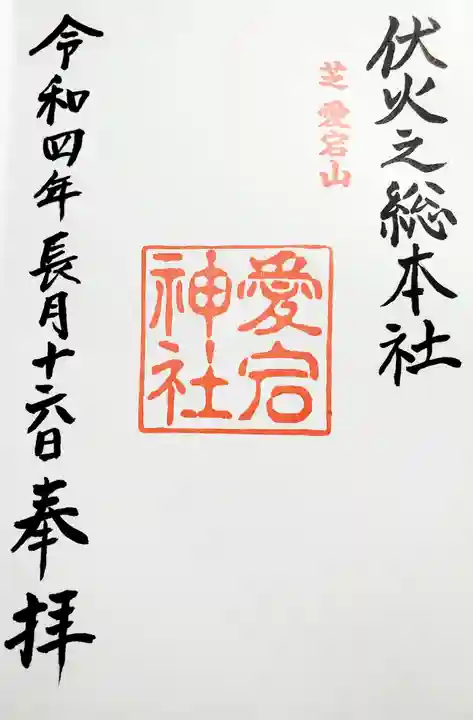 伏火之総本社
芝愛宕山
愛宕
神社
令和四年長月十六日奉拝